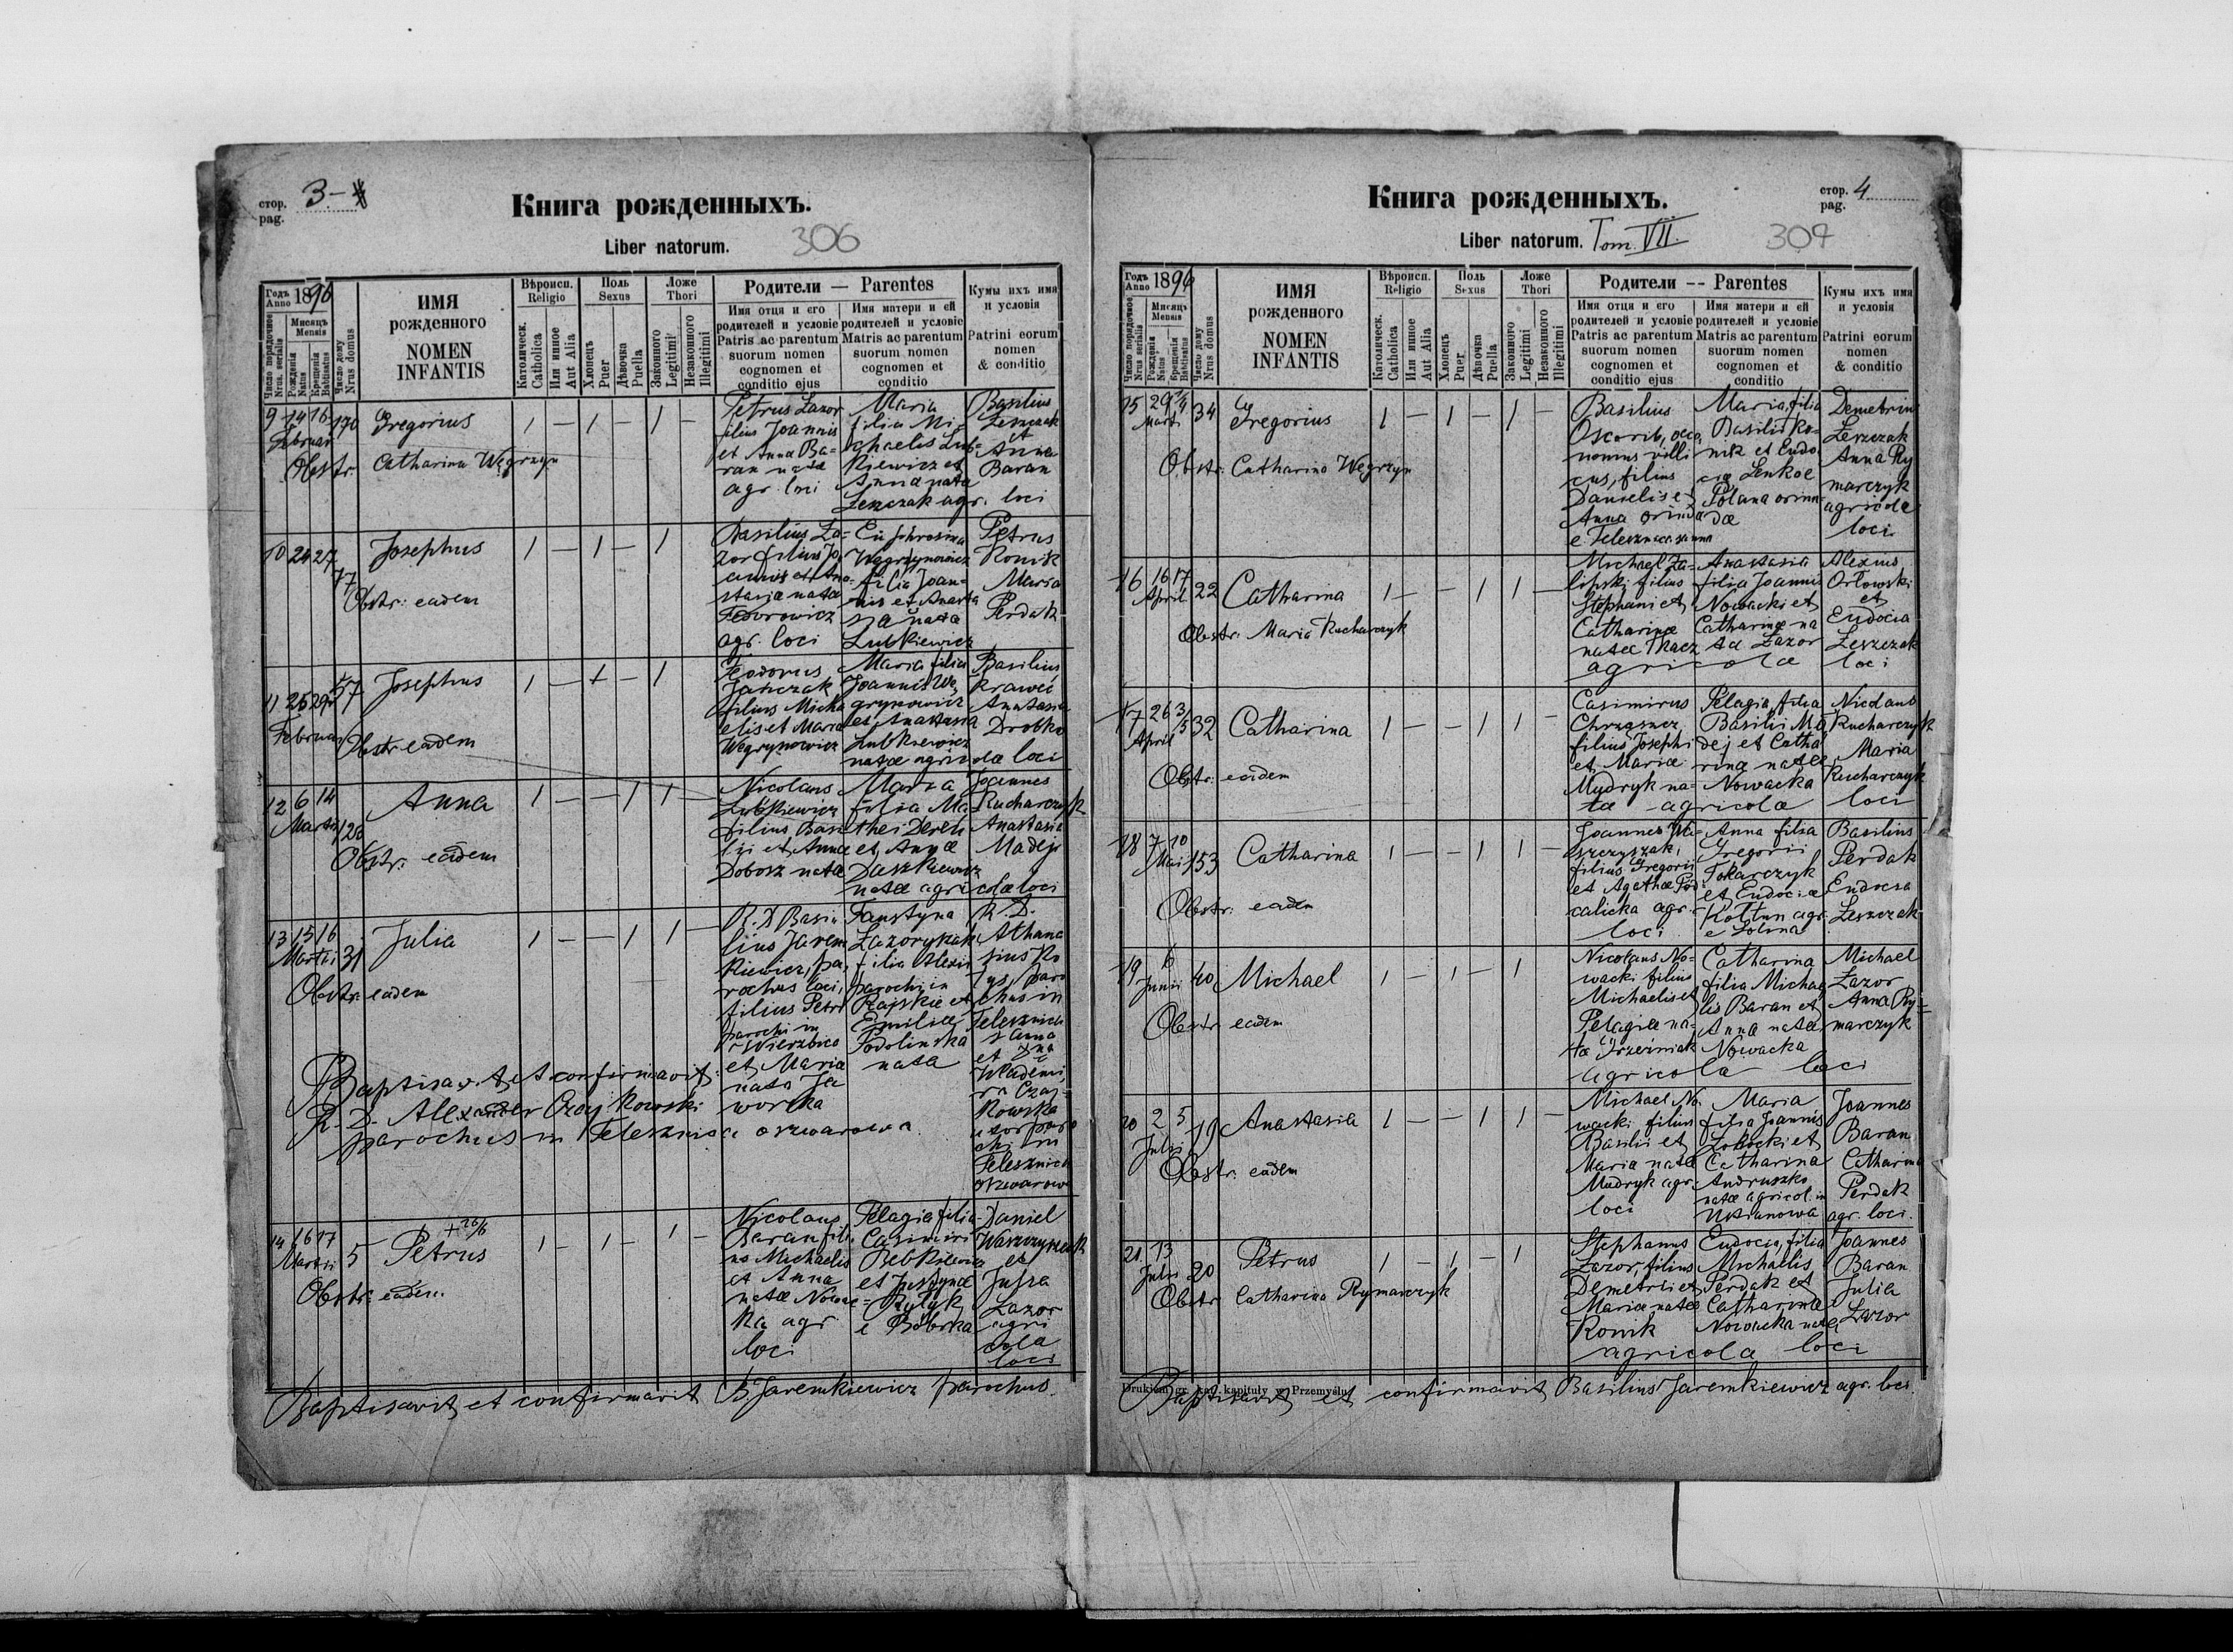 стор.
pag.
3-
Книга рожденныхъ.
Liber natorum.
306
Годъ
Anno 1896
Мисяцъ
Mensis
Число порядочное
Nrus. serialis
Рождения
Natus
Крещения
Babtisatus
Число дому
Nrus domus
ИМЯ
рожденного
NOMEN
INFANTIS
Вѣроисп.
Religio
Католическ.
Catholica
Или инное
Aut Alia
Поль
Sexus
Хлопецъ
Puer
Дѣвочка
Puella
Ложе
Thori
Законного
Legitimi
Незаконного
Illegitimi
Родители — Parentes
Имя отця и его
родителей и условіе
Patris ac parentum
suorum nomen
cognomen et
conditio ejus
Имя матери и ей
родителей и условіе
Matris ac parentum
suorum nomen
cognomen et
conditio
Кумы ихъ имя
и условія
Patrini eorum
nomen
& conditio
9 14 16 170
Februar
Gregorius
1 — 1 — 1 —
Obstr. Catharina Węgrzyn
Petrus Lazor
filius Joannis
et Anna Ba=
ran nata
agr. loci
Maria
filia Mi-
chaelis Lub=
kiewicz et
Anna nata
Leszczak agr. loci
Basilius
Leszczak
et
Anna
Baran
10 24 27
77
Josephus
1 — 1 — 1
Obstr: eadem
Basilius La=
zor filius Jo
annis et Ana-
stasia nata
Fedorowicz
agr. loci
Euphrosina
Węgrzynowicz
filia Joan=
nis et Anasta
sia nata
Lubkiewicz
Petrus
Konik
Maria
Perdak
11 25 29 57
Februar
Josephus
1 — 1 — 1
Obstr eadem
Teodorus
Janczak
filius Micha
elis et Maria
Węgrynowicz
Maria filia
Joannis Wę,
grynowicz
et Anastasia
Lubkiewicz
natae agricolae loci
Basilius
Krawec
Anastasia
Drobko
12 6 14
Martii 128
Anna
1 — — 1 1 —
Obstr: eadem
Nicolaus
Lubkiewicz
filius Basi
lii et Anna
Dobosz nata
Maria
filia Ma
thei Dereń
et Annae
Daszkiewicz
natae agricolae loci
Joannes
Kucharczyk
Anastasia
Madej
13 15 16
Martii 31
Julia
1 — — 1 1 —
Obstr: eadem
R. D Basi
lius Jarem
kiewicz, pa,
rochus loci,
filius Petri
parochi in
Wierzbica
et Maria
nata Ja
worska
Faustyna
Lazorykak
filia Alexii
parochi in
Rajskie et
Emiliae
Podolinska
nata
R. D.
Athana
sius Ko
lys, paro
chus in
Telesznica
sanna
et Dna
Wladimi,
ra Czaj-
kowska
uxor paro
chi in
Telesznica
oszwarowa
Baptisavit et confirmavit:
R. D. Alexander Czajkowski
parochus in Telesznica oszwarowa
14 16 17
Martii 5
+ 20/6
Petrus
1 — 1 — 1 —
Obstr: eadem.
Nicolaus
Baran fili
us Michaelis
et Anna
natae Nowac=
ka agr
loci
Pelagia filia
Casimiri
Bebkiewicz
et Justynae
Rytyk
e Bobrka
Daniel
Waszczyszak
et
Julia
Lazor
agri
cola
loci
Baptisavit et confirmavit B. Jaremkiewicz parochus.
Книга рожденныхъ.
стор.
pag.
4
Liber natorum. Tom. VII.
307
Годъ
Anno 1896
Мисяцъ
Mensis
Число порядочное
Nrus serialis
Рождения
Natus
Крещения
Babtisatus
Число дому
Nrus domus
ИМЯ
рожденного
NOMEN
INFANTIS
Вѣроисп.
Religio
Католическ.
Catholica
Или инное
Aut Alia
Поль
Sexus
Хлопецъ
Puer
Дѣвочка
Puella
Ложе
Thori
Законного
Legitimi
Незаконного
Illegitimi
Родители -- Parentes
Имя отця и его
родителей и условіе
Patris ac parentum
suorum nomen
cognomen et
conditio ejus
Имя матери и ей
родителей и условіе
Matris ac parentum
suorum nomen
cognomen et
conditio
Кумы ихъ имя
и условія
Patrini eorum
nomen
& conditio
15 29 34
Martii
Gregorius
1 — 1 — 1 —
Obstr: Catharina Węgrzyn
Basilius
Oscorib, oeco
nomus villi
cus, filius
Danielis et
Anna oriunda
e Telesznica sanna
Maria, filia
Basilii Ko-
nik et Eudo
cia Lenkoe
Polana oriun-
dae
Demetrius
Leszczak
Anna Ry
marczyk
agricolae
loci
16 16 17 22
April
Catharina
1 — — 1 1 —
Obstr: Maria Kucharczyk
Michael Za=
lipski filius
Stephani et
Catharinae
natae Tkacz
agricolae
Anastasia
filia Joannis
Nowacki et
Catharinae na
tae Lazor
Alexius
Orłowski
et
Eudocia
Leszczak
loci
17 26 3/5 32
April
Catharina
1 — — 1 1 —
Obstr: eadem
Casimirus
Chrząszcz
filius Josephi
et Mariae
Mudryk na-
tae agricolae
Pelagia, filia
Basilii Ma
dej et Catha
rina natae
Nowacka
Nicolaus
Kucharczyk
Maria
Kucharczyk
loci
18 7 10
Mai 153
Catharina
1 — — 1 1 —
Obstr: eadem
Joannes Wa-
szczyszak,
filius Gregorii
et Agathae Pod
calicka agr.
loci
Anna filia
Gregorii
Tokarczyk
et Eudociae
Kottun agr.
e Solina
Basilius
Perdak
Eudocia
Leszczak
19 6
Junii 40
Michael
1 — 1 — 1
Obstr eadem
Nicolaus No-
wacki filius
Michaelis et
Pelagiae na-
tae
agricola
Catharina
filia Michae
lis Baran et
Anna natae
Nowacka
loci
Michael
Lazor
Anna Ry=
marczyk
20 2 5
Julii 19
Anastasia
1 — — 1 1 —
Obstr: eadem
Michael No.
wacki filius
Basilii et
Maria natae
Mudryk agr.
loci
Maria
filia Joannis
et
Catharina
Andruszko
natae agricol. in
Ustianowa
Joannes
Baran
Catharina
Perdak
agr. loci.
21. 13
Julii 20
Petrus
1 — 1 — 1
Obstr Catharina Rymarczyk
Stephanus
Lazor, filius
Demetrii et
Mariae natae
Konik
agricola
Eudocia, filia
Michaelis
Perdak et
Catharinae
Nowacka natae
loci
Joannes
Baran
Julia
Lazor
Drukiem gr. kat. kapituły w Przemyślu.
Baptisavit et confirmavit Basilius Jaremkiewicz agr. loci.